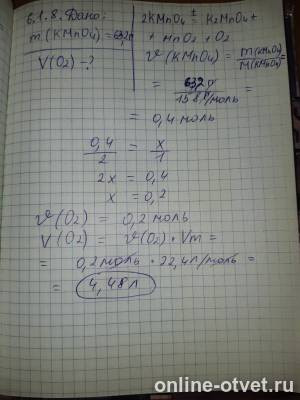 6.1.8. Дано:
m(KMnO4)=63,2г
V(O2)-?
2KMnO4 t= K2MnO4+
+ MnO2 + O2
ν(KMnO4) = m(KMnO4)/M(KMnO4) =
= 63,2г/158г/моль =
= 0,4 моль
0,4/2 = x/1
2x = 0,4
x = 0,2
ν(O2) = 0,2 моль
V(O2) = ν(O2) · Vm =
= 0,2 моль · 22,4 л/моль =
= 4,48 л
online-otvet.ru